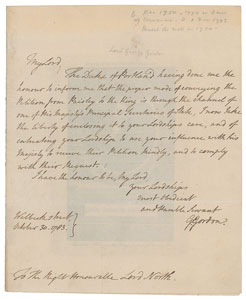 Lord George Gordon
My Lord
The Duke of Portland having done me the
honour to inform me that the proper mode of conveying the
Petition from Paisley to the King is through the channel of
one of His Majesty's Principal Secretaries of State, I now take
the liberty of inclosing it to your Lordships care, and of
entreating your Lordship to use your influence with his
Majesty to receive their Petition kindly, and to comply
with their Request.
I have the honour to be, My Lord
Your Lordships
most obedient
and Humble Servant
G Gordon.
Welbeck street
October 30. 1783.
To The Right Honourable Lord North.